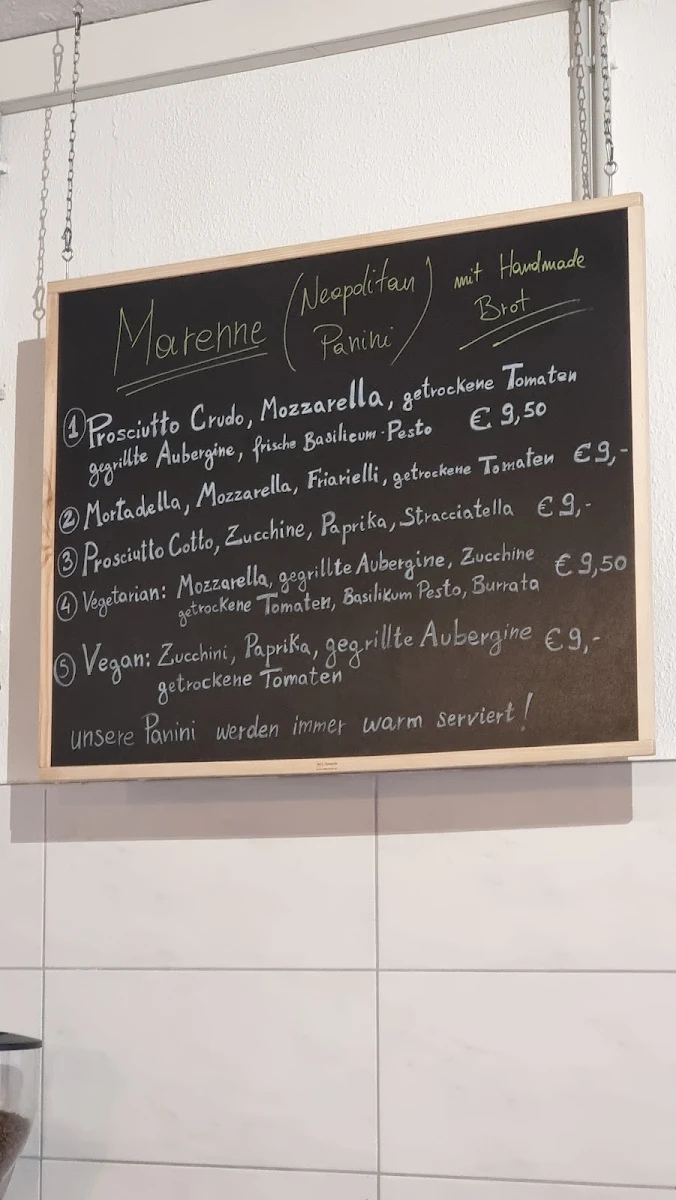 Marenne (Neapolitan Panini) mit Handmade Brot
① Prosciutto Crudo, Mozzarella, getrockene Tomaten
gegrillte Aubergine, frische Basilicum-Pesto € 9,50
② Mortadella, Mozzarella, Friarielli, getrockene Tomaten € 9,-
③ Prosciutto Cotto, Zucchine, Paprika, Stracciatella € 9,-
④ Vegetarian: Mozzarella, gegrillte Aubergine, Zucchine € 9,50
getrockene Tomaten, Basilikum Pesto, Burrata
⑤ Vegan: Zucchini, Paprika, gegrillte Aubergine € 9,-
getrockene Tomaten
unsere Panini werden immer warm serviert!